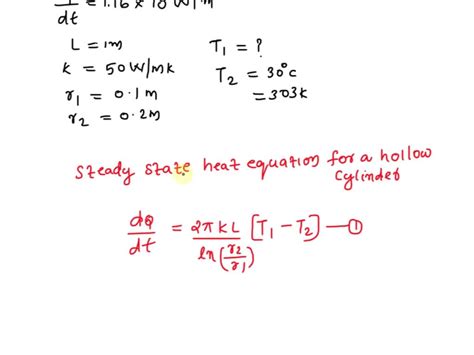 dt = 1.16 × 10 W/m
L = 1m
K = 50 W/mK
r1 = 0.1 m
r2 = 0.2m
T1 = ?
T2 = 30°C
= 303K
Steady state heat equation for a hollow
cylinder
dQ/dt = 2πKL/ln(r2/r1) [T1 - T2] — ①